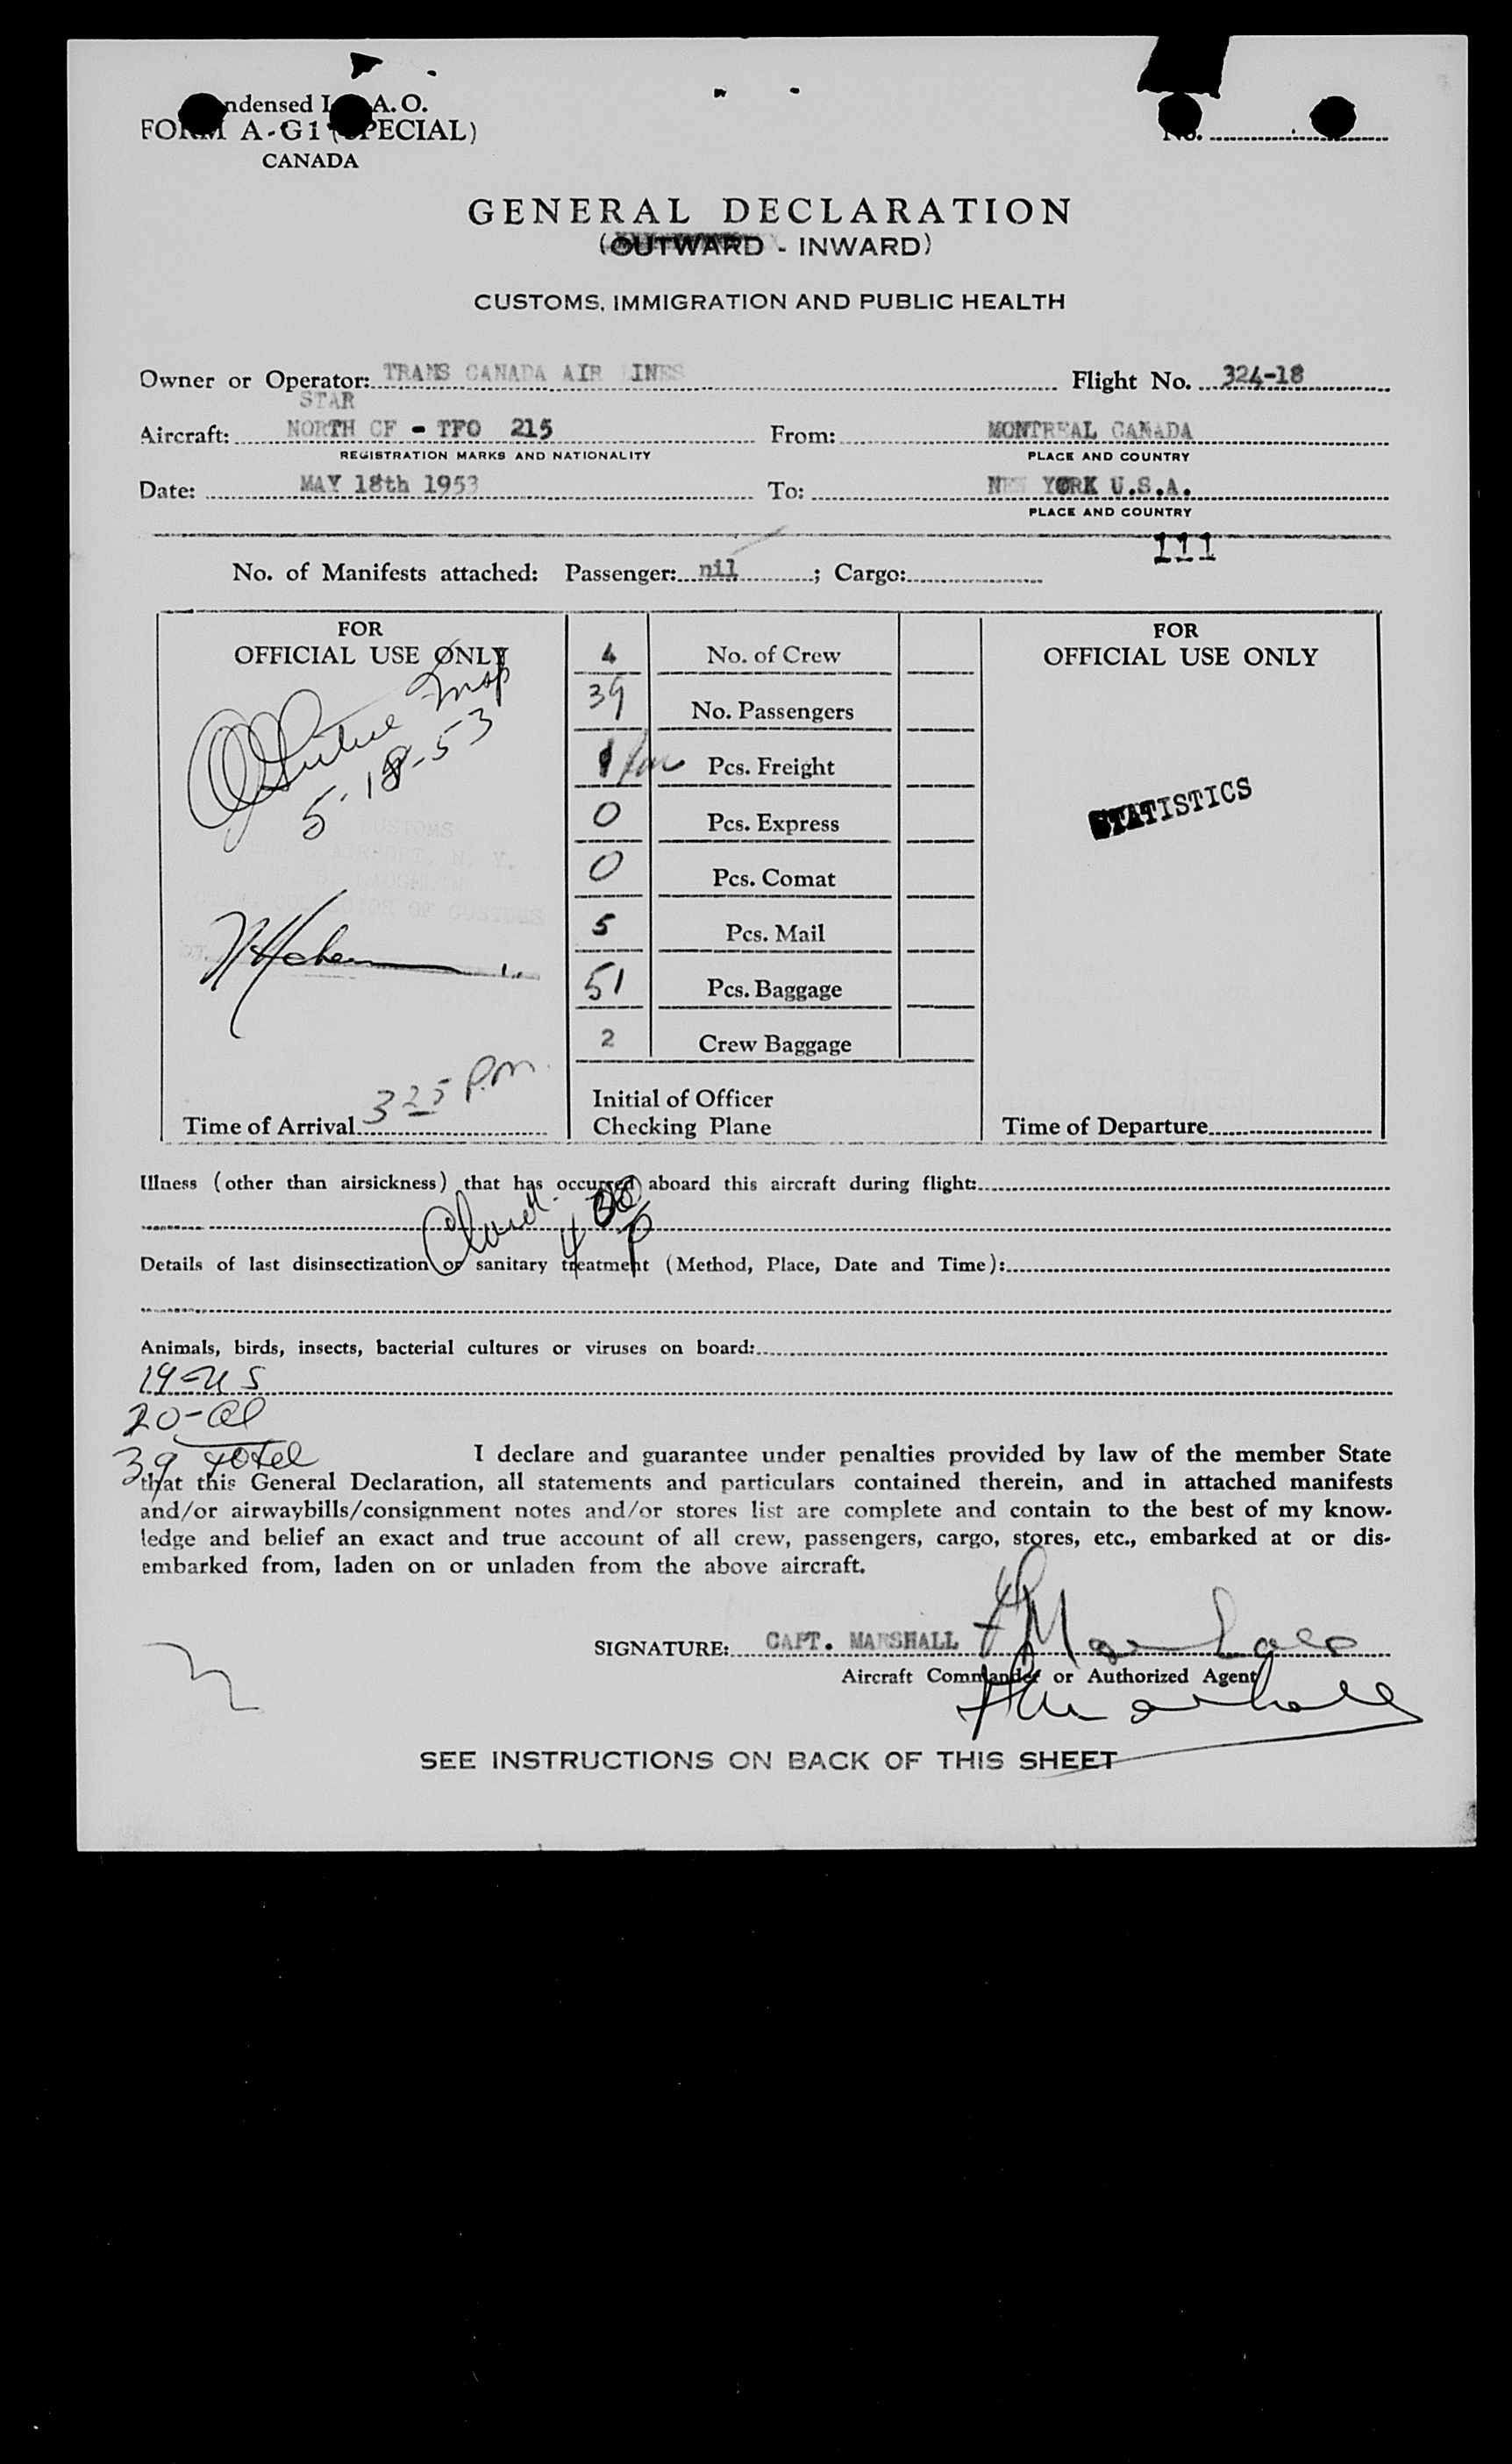 ndensed I A. O.
FORM A-G1 (SPECIAL)
CANADA
No.
GENERAL DECLARATION
(OUTWARD - INWARD)
CUSTOMS, IMMIGRATION AND PUBLIC HEALTH
Owner or Operator: TRANS CANADA AIR LINES Flight No. 324-18
STAR
Aircraft: NORTH CF - TFO 215 From: MONTREAL CANADA
REGISTRATION MARKS AND NATIONALITY PLACE AND COUNTRY
Date: MAY 18th 1953 To: NEW YORK U.S.A.
PLACE AND COUNTRY
111
No. of Manifests attached: Passenger: nil ; Cargo:
FOR
OFFICIAL USE ONLY
Insp
5-18-53
CUSTOMS
COLLECTOR OF CUSTOMS
Time of Arrival 325 P.m.
4 No. of Crew
39 No. Passengers
1 Pcs. Freight
0 Pcs. Express
0 Pcs. Comat
5 Pcs. Mail
51 Pcs. Baggage
2 Crew Baggage
Initial of Officer
Checking Plane
FOR
OFFICIAL USE ONLY
STATISTICS
Time of Departure
Illness (other than airsickness) that has occurred aboard this aircraft during flight:
4 30 P
Details of last disinsectization or sanitary treatment (Method, Place, Date and Time):
Animals, birds, insects, bacterial cultures or viruses on board:
19-US
20-al
39 Total
I declare and guarantee under penalties provided by law of the member State
that this General Declaration, all statements and particulars contained therein, and in attached manifests
and/or airwaybills/consignment notes and/or stores list are complete and contain to the best of my know-
ledge and belief an exact and true account of all crew, passengers, cargo, stores, etc., embarked at or dis-
embarked from, laden on or unladen from the above aircraft.
SIGNATURE: CAPT. MARSHALL Marshall
Aircraft Commander or Authorized Agent
Marshall
SEE INSTRUCTIONS ON BACK OF THIS SHEET